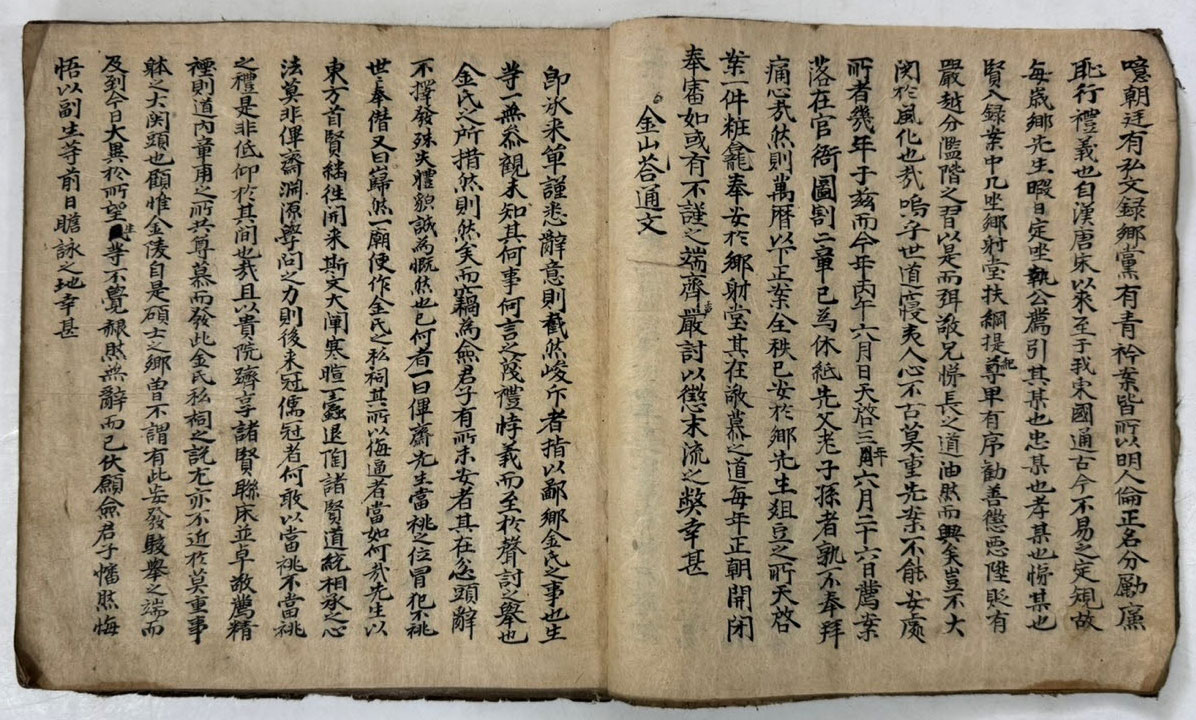 噫朝廷有弘文録鄉黨有青衿案皆所以明人倫正名分勵廉
恥行禮義也自漢唐宋以來至于我東國通古今不易之定規故
每歲鄉先生暇日定坐執公薦引其某也忠某也孝某也悌某也
賢入録案中凡坐鄉射堂扶綱提紀尊卑有序勸善懲惡陞貶有
嚴越分濫階之習以是而弭敬兄悌長之道油然而興矣豈不大
関於風化也哉嗚乎世道寖夷人心不古莫重先案不能安處
所者幾年于玆而今年丙午六月日天啓三年六月二十六日薦案
落在官衙圖割二章已為休紙先父老子孫者孰不奉拜
痛心哉然則萬曆以下正案全秩已安於鄉先生爼豆之所天啓
案一件粧龕奉安於鄉射堂其在敬慕之道每年正朝開閉
奉審如或有不謹之端齊聲嚴討以懲末流之弊幸甚
金山答通文
卽承来單謹悉辭意則截然峻斥者指以鄙鄉金氏之事也生
等一無叅觀未知其何事何言之蔑禮悖義而至於聲討之擧也
金氏之所措然則然矣而竊為僉君子有所未安者其在忩頭辭
不擇發殊失禮貌誠為慨然也已何者一曰俥齋先生當祧之位冒犯不祧
世奉僭又曰巋然一廟便作金氏之私祠其所以侮逼者當如何哉先生以
東方首賢継徃開来斯文大闡寒暄一蠹退陶諸賢道統相承之心
法莫非俥齋淵源學問之力則後来冠儒冠者何敢以當祧不當祧
之禮是非低仰於其間也哉且以貴院躋享諸賢聯床並卓敬薦精
禋則道內章甫之所共尊慕而發此金氏私祠之説尤亦不近於莫重事
躰之大関頭也顧惟金陵自是碩士之鄉曽不謂有此妄發駭擧之端而
及到今日大異於所望生等不覺赧然無辭而已伏願僉君子幡然悔
悟以副生等前日瞻詠之地幸甚